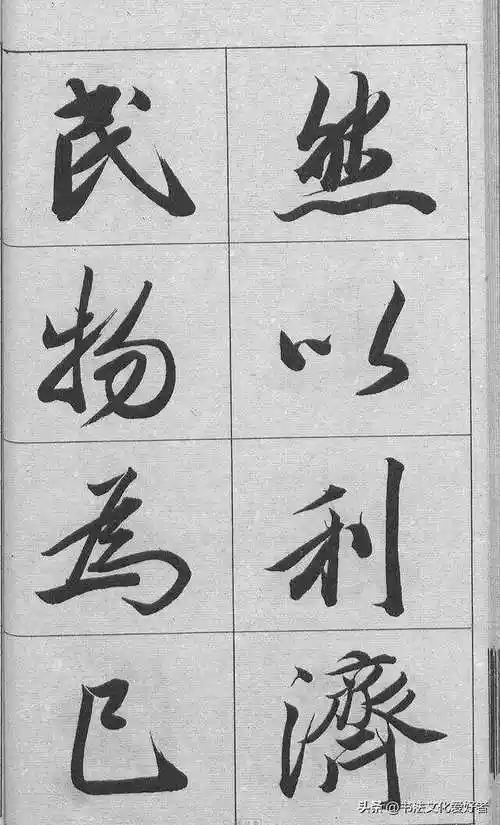 然以利濟
民物為己
头条 @书法文化爱好者